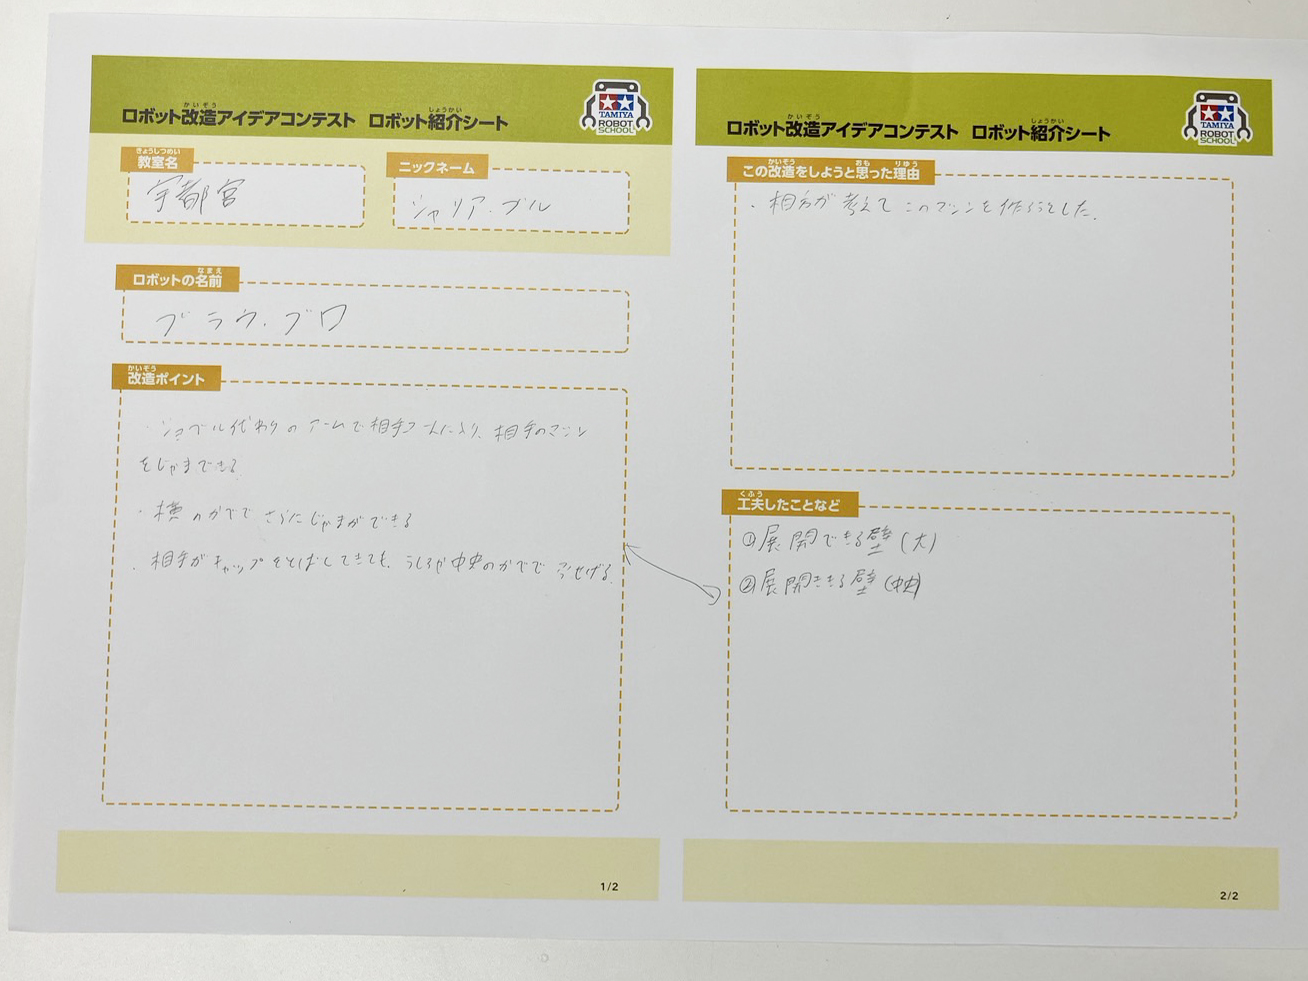 ロボット改造アイデアコンテスト ロボット紹介シート
かいぞう
しょうかい
TAMIYA
ROBOT
SCHOOL
きょうしつめい
教室名
宇都宮
ニックネーム
シャリア・ブル
なまえ
ロボットの名前
ブラウ・ブロ
かいぞう
改造ポイント
・ショベル代わりのアームで相手コートに入り、相手のマシン
をじゃまできる
・横のかべでさらにじゃまができる
・相手がキャップをとばしてきても、うしろや中央のかべでふせげる。
1/2
ロボット改造アイデアコンテスト ロボット紹介シート
かいぞう
しょうかい
TAMIYA
ROBOT
SCHOOL
かいぞう おも りゆう
この改造をしようと思った理由
・相方が考えてこのマシンを作ろうとした。
くふう
工夫したことなど
①展開できる壁(大)
②展開きる壁(中央)
2/2